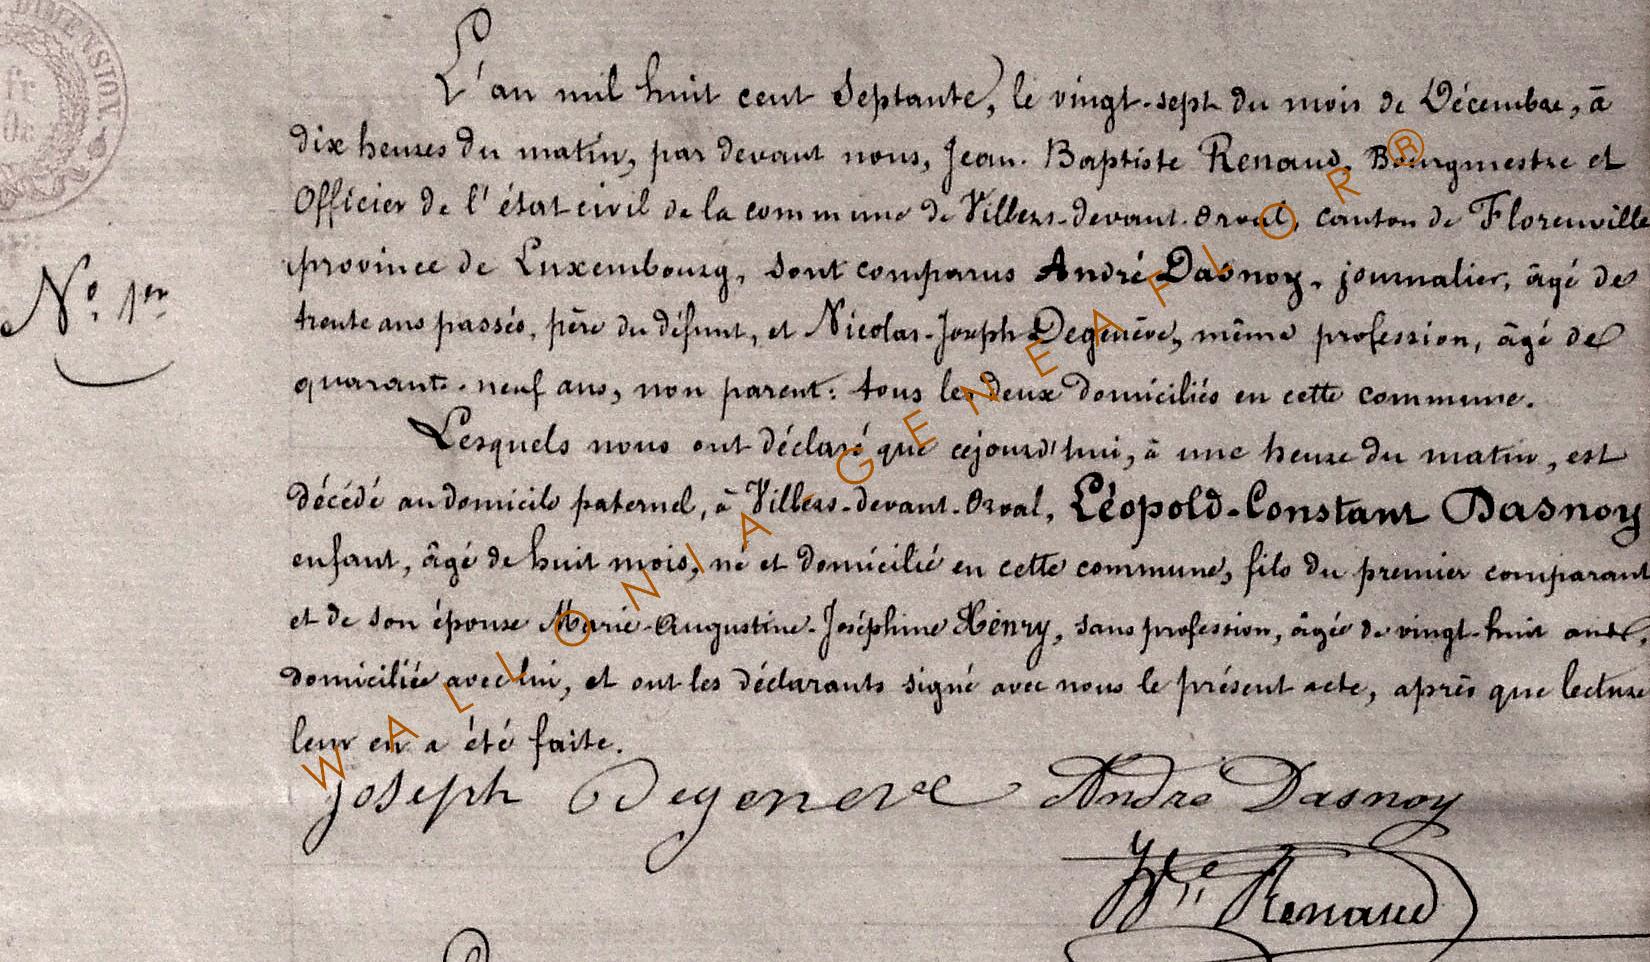 DIMENSION
fr
0c
N.º 1er
L'an mil huit cent septante, le vingt-sept du mois de Décembre, à
dix heures du matin, par devant nous, Jean-Baptiste Renaud, Bourgmestre et
Officier de l'état civil de la commune de Villers-devant-Orval, canton de Florenville
province de Luxembourg, sont comparus André Dasnoy, journalier, âgé de
trente ans passés, père du défunt, et Nicolas-Joseph Degenève, même profession, âgé de
quarante-neuf ans, non parent: tous les deux domiciliés en cette commune.
Lesquels nous ont déclaré que cejourd'hui, à une heure du matin, est
décédé au domicile paternel, à Villers-devant-Orval, Léopold-Constant Dasnoy
enfant, âgé de huit mois, né et domicilié en cette commune, fils du premier comparant
et de son épouse Marie-Augustine-Joséphine Henry, sans profession, âgée de vingt-huit ans,
domiciliée avec lui, et ont les déclarants signé avec nous le présent acte, après que lecture
leur en a été faite.
Joseph Degeneve André Dasnoy
Renaud
WALLONIA-GENEAFLOR®